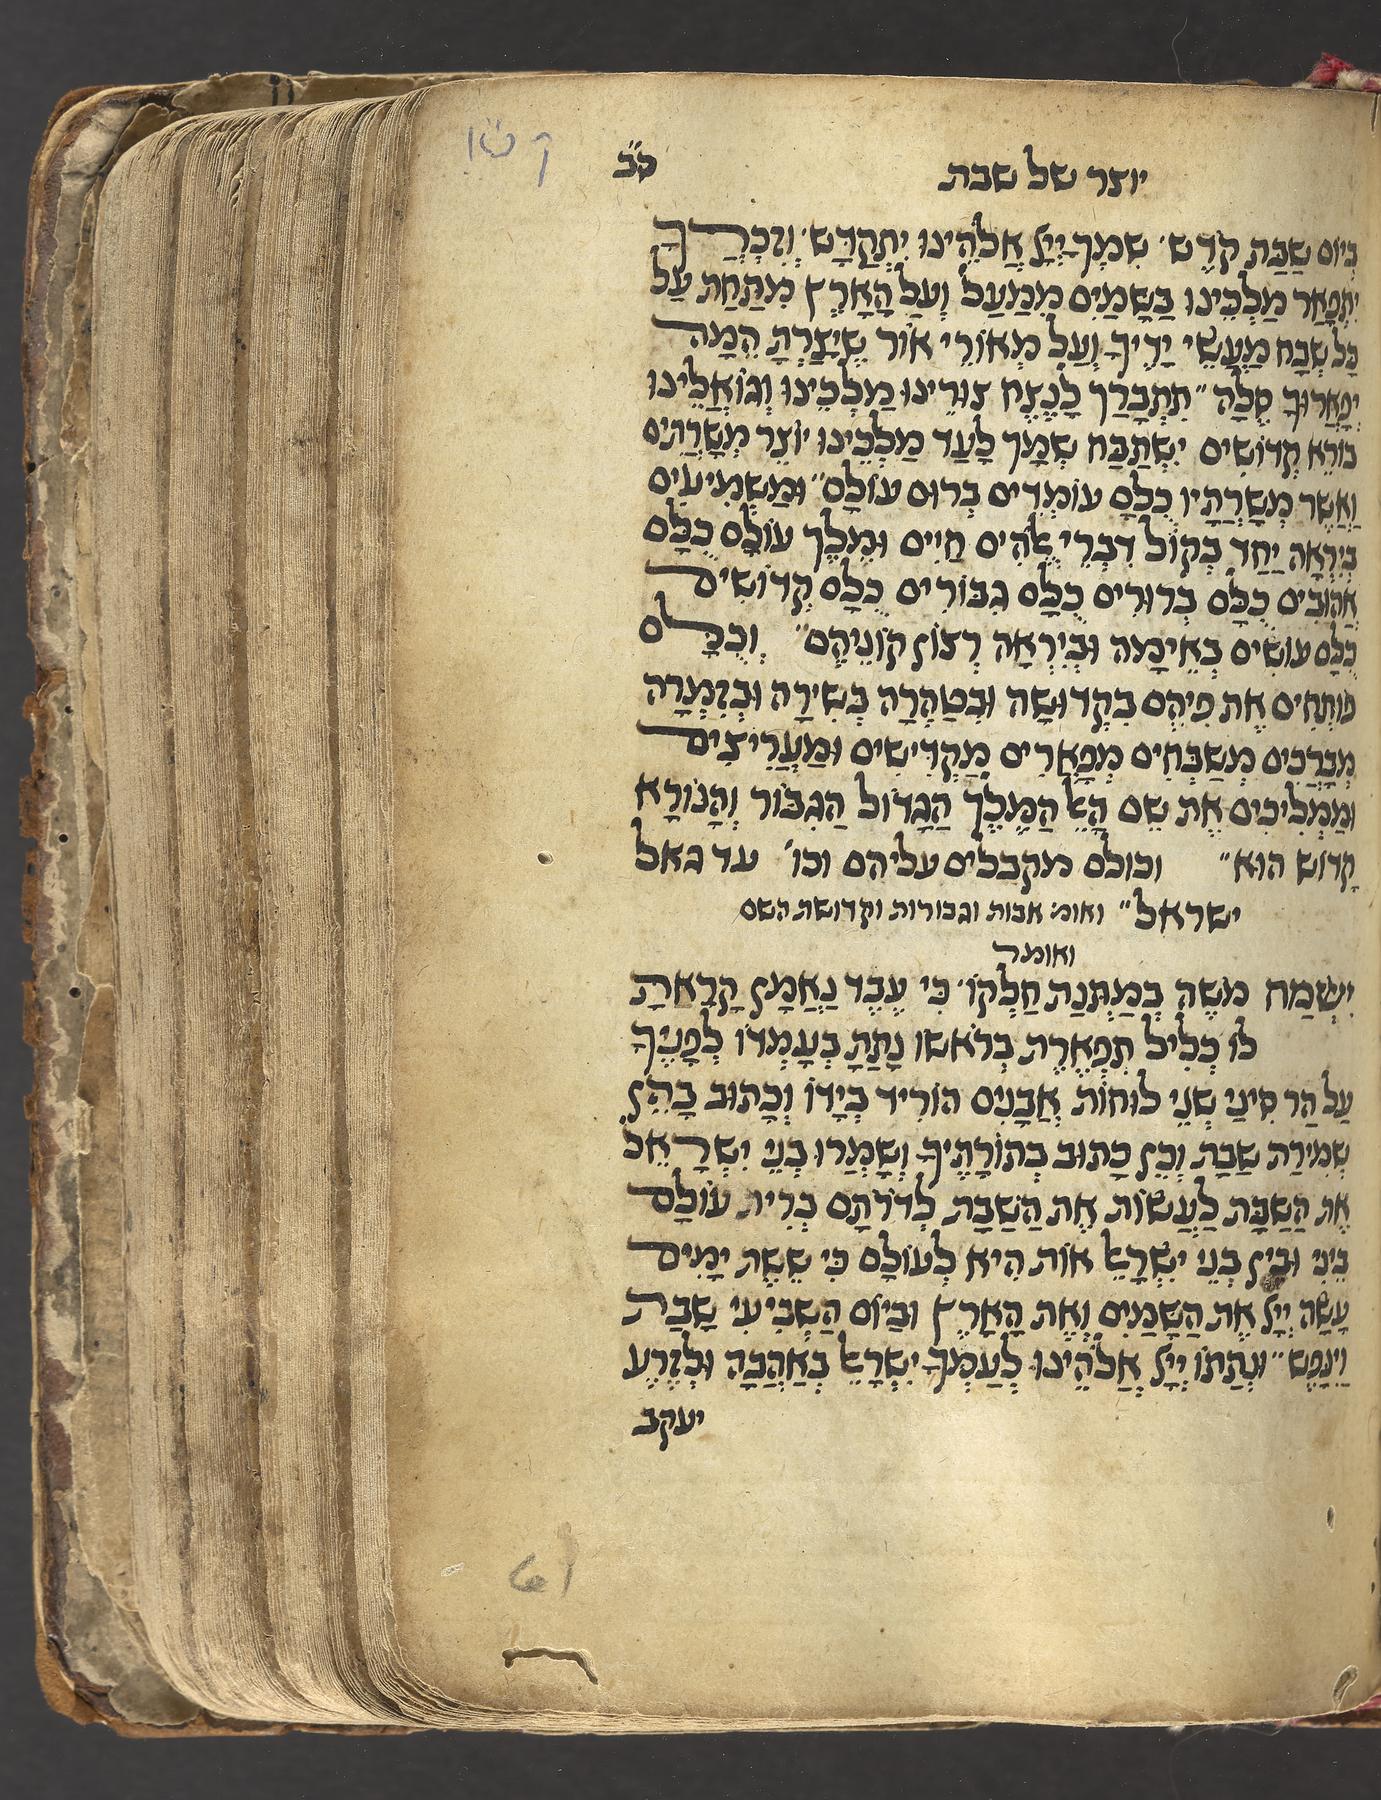 יוצר של שבת כ"ב
ק ש ו
בְּיוֹם שַׁבַּת קֹדֶשׁ׳ שִׁמְךָ יְיָ אֱלֹהֵינוּ יִתְקַדָּשׁ׳ וְזִכְרְךָ
יִתְפָּאַר מַלְכֵּינוּ בַּשָּׁמַיִם מִמַּעַל וְעַל הָאָרֶץ מִתַּחַת עַל
כָּל שְׁבָח מַעֲשֵׂי יָדֶיךָ וְעַל מְאוֹרֵי אוֹר שֶׁיָּצַרְתָּ הֵמָּה
יְפָאֲרוּךָ סֶלָה״ תִּתְבָּרַךְ לָנֶצַח צוּרֵינוּ מַלְכֵּינוּ וְגוֹאֲלֵינוּ
בּוֹרֵא קְדוֹשִׁים יִשְׁתַּבַּח שְׁמָךְ לָעַד מַלְכֵּינוּ יוֹצֵר מְשָׁרְתִים
וַאֲשֶׁר מְשָׁרְתָיו כֻּלָּם עוֹמְדִים בְּרוּם עוֹלָם״ וּמַשְׁמִיעִים
בְּיִרְאָה יַחַד בְּקוֹל דִּבְרֵי אֱלֹהִים חַיִּים וּמֶלֶךְ עוֹלָם כֻּלָּם
אֲהוּבִים כֻּלָּם בְּרוּרִים כֻּלָּם גִּבּוֹרִים כֻּלָּם קְדוֹשִׁים
כֻּלָּם עוֹשִׂים בְּאֵימָה וּבְיִרְאָה רְצוֹן קוֹנֵיהֶם״ וְכֻלָּם
פּוֹתְחִים אֶת פִּיהֶם בִּקְדוּשָּׁה וּבְטָהֳרָה בְּשִׁירָה וּבְזִמְרָה
מְבָרְכִים מְשַׁבְּחִים מְפָאֲרִים מַקְדִּישִׁים וּמַעֲרִיצִים
וּמַמְלִיכִים אֶת שֵׁם הָאֵל הַמֶּלֶךְ הַגָּדוֹל הַגִּבּוֹר וְהַנּוֹרָא
קָדוֹשׁ הוּא״ וכולם מקבלים עליהם וכו׳ עד גאל
ישראל״ ואומ׳ אבות וגבורות וקדושת השם
ואומר
יִשְׂמַח מֹשֶׁה בְּמַתְּנַת חֶלְקוֹ׳ כִּי עֶבֶד נֶאֱמָן קָרָאתָ
לוֹ כְּלִיל תִּפְאֶרֶת בְּרֹאשׁוֹ נָתַתָּ בְּעָמְדוֹ לְפָנֶיךָ
עַל הַר סִינַי שְׁנֵי לוּחוֹת אֲבָנִים הוֹרִיד בְּיָדוֹ וְכָתוּב בָּהֶן
שְׁמִירַת שַׁבָּת וְכֵן כָּתוּב בְּתוֹרָתֶיךָ וְשָׁמְרוּ בְנֵי יִשְׂרָאֵל
אֶת הַשַּׁבָּת לַעֲשׂוֹת אֶת הַשַּׁבָּת לְדֹרֹתָם בְּרִית עוֹלָם
בֵּינִי וּבֵין בְּנֵי יִשְׂרָאֵל אוֹת הִיא לְעוֹלָם כִּי שֵׁשֶׁת יָמִים
עָשָׂה יְיָ אֶת הַשָּׁמַיִם וְאֶת הָאָרֶץ וּבַיּוֹם הַשְּׁבִיעִי שָׁבַת
וַיִּנָּפַשׁ״ וּנְתַתּוֹ יְיָ אֱלֹהֵינוּ לְעַמְּךָ יִשְׂרָאֵל בְּאַהֲבָה וּלְזֶרַע
יעקב